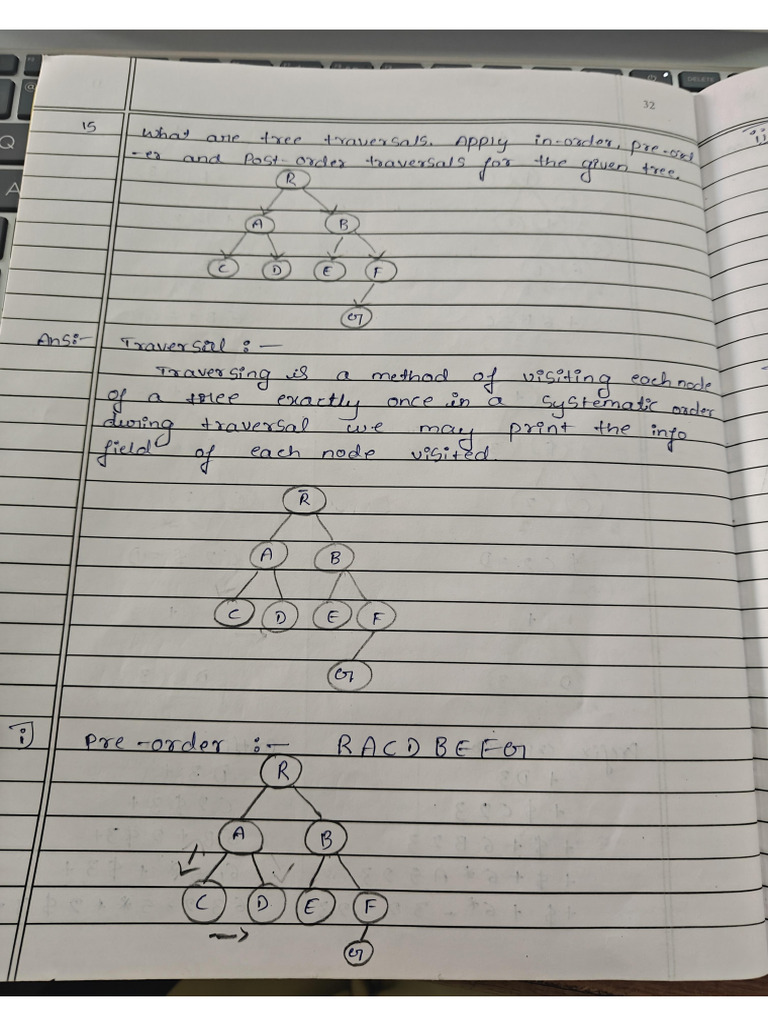 32
15 What are tree traversals. Apply in-order, pre-ord
-er and Post-order traversals for the given tree.
R
A B
C D E F
G
Ans:- Traversal :-
Traversing is a method of visiting each node
of a tree exactly once in a systematic order
during traversal we may print the info
field of each node visited.
R
A B
C D E F
G
i) Pre-order :- R A C D B E F G
R
A B
C D E F
G